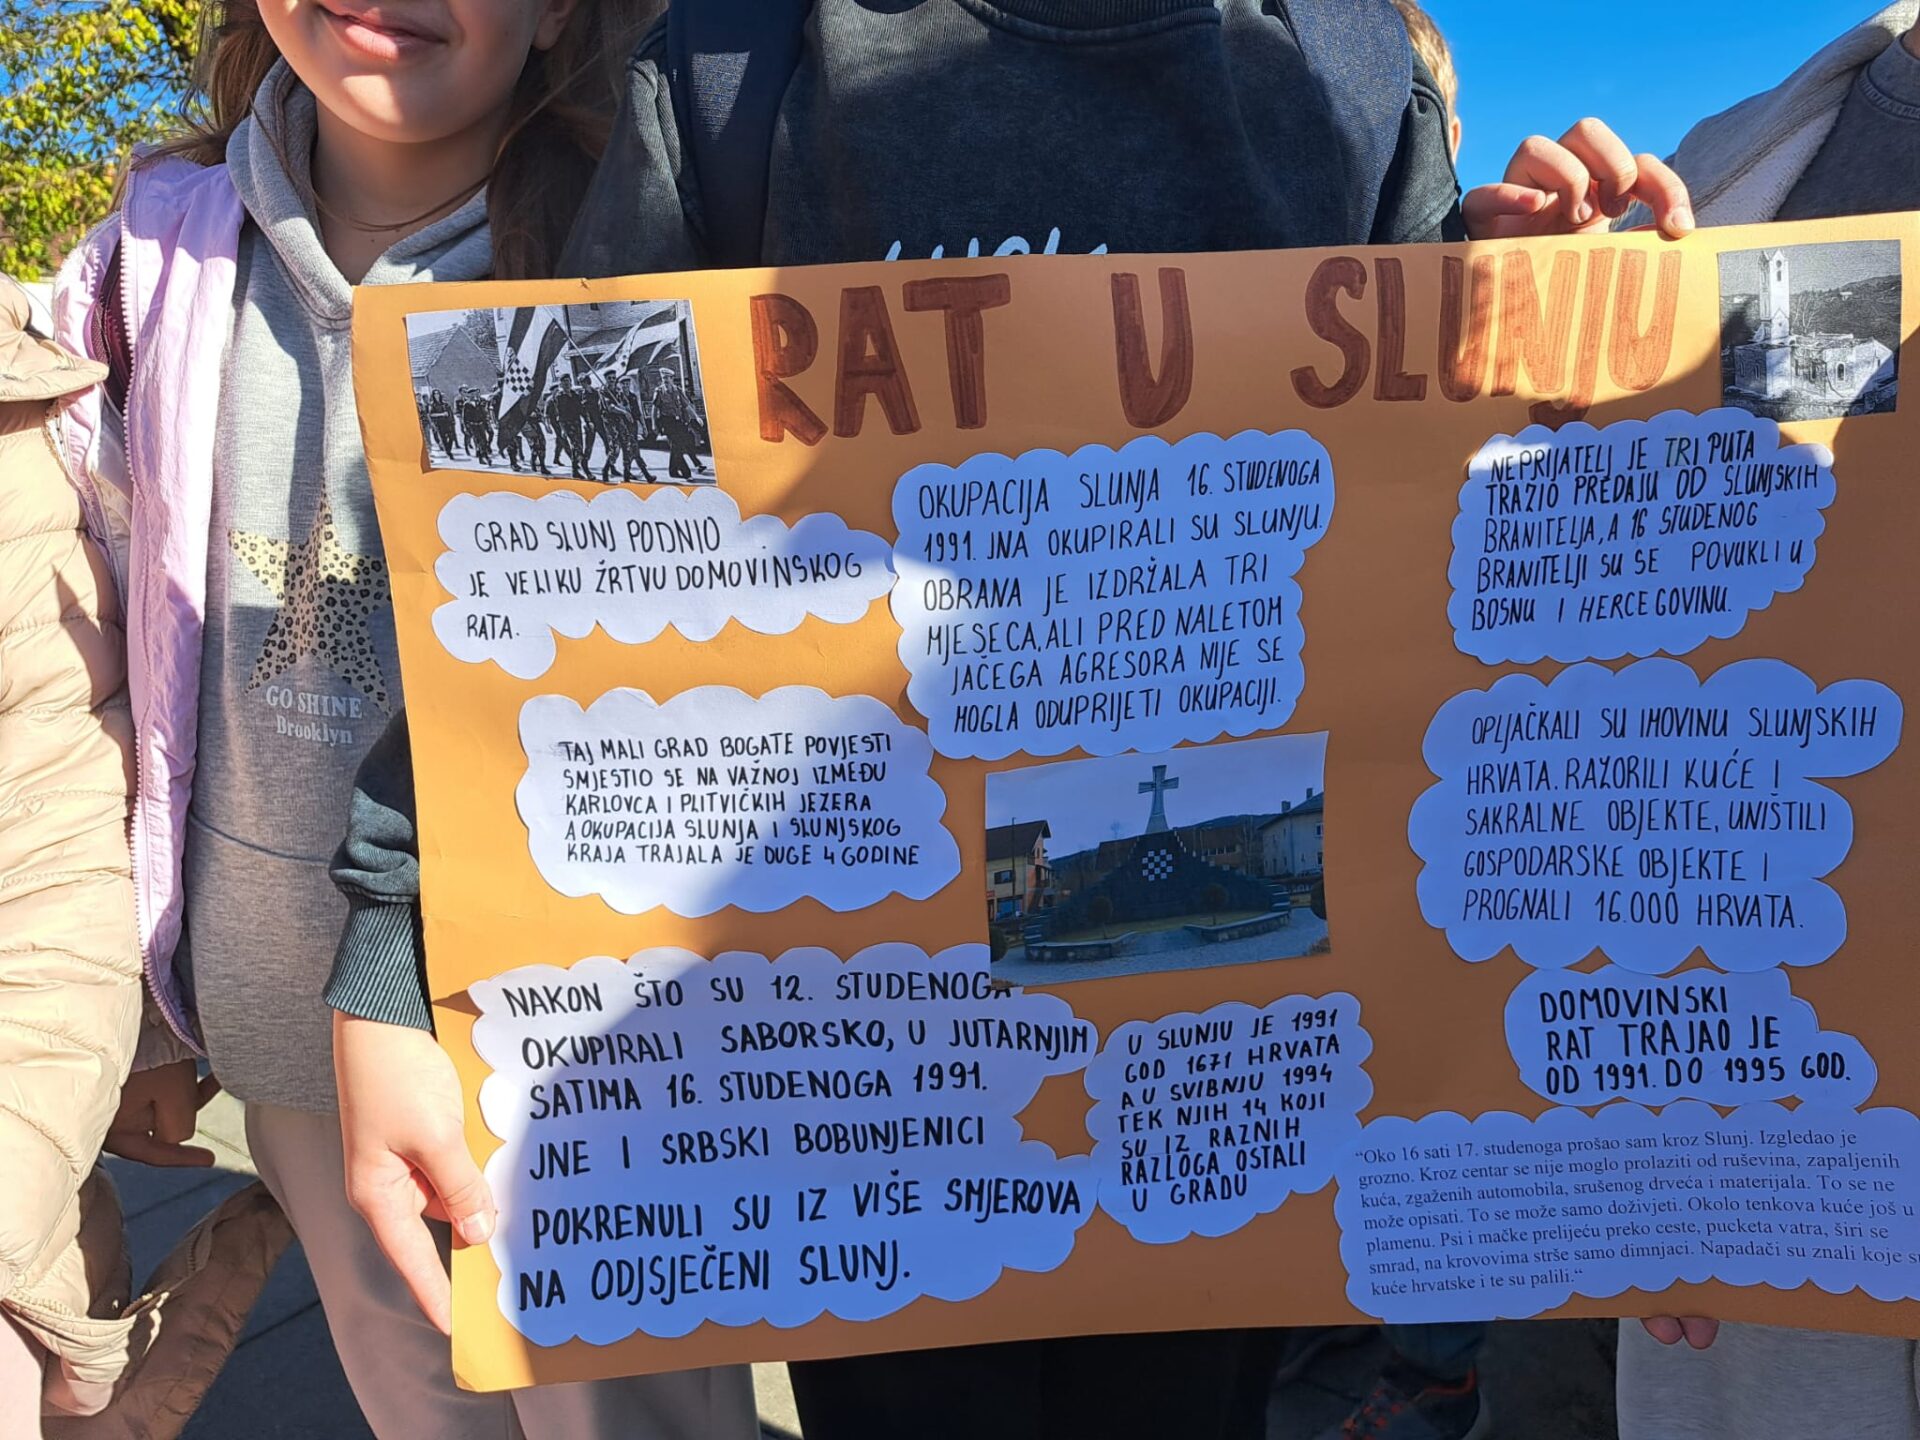 RAT U SLUNJU
GRAD SLUNJ PODNIO
JE VELIKU ŽRTVU DOMOVINSKOG
RATA.
OKUPACIJA SLUNJA 16. STUDENOGA
1991. JNA OKUPIRALI SU SLUNJU.
OBRANA JE IZDRŽALA TRI
MJESECA, ALI PRED NALETOM
JAČEGA AGRESORA NIJE SE
MOGLA ODUPRIJETI OKUPACIJI.
NEPRIJATELJ JE TRI PUTA
TRAZIO PREDAJU OD SLUNJSKIH
BRANITELJA, A 16 STUDENOG
BRANITELJI SU SE POVUKLI U
BOSNU I HERCEGOVINU.
TAJ MALI GRAD BOGATE POVJESTI
SMJESTIO SE NA VAŽNOJ IZMEĐU
KARLOVCA I PLITVIČKIH JEZERA
A OKUPACIJA SLUNJA I SLUNJSKOG
KRAJA TRAJALA JE DUGE 4 GODINE
OPLJAČKALI SU IMOVINU SLUNJSKIH
HRVATA. RAZORILI KUĆE I
SAKRALNE OBJEKTE, UNIŠTILI
GOSPODARSKE OBJEKTE I
PROGNALI 16.000 HRVATA.
NAKON ŠTO SU 12. STUDENOGA
OKUPIRALI SABORSKO, U JUTARNJIM
SATIMA 16. STUDENOGA 1991.
JNE I SRBSKI BOBUNJENICI
POKRENULI SU IZ VIŠE SMJEROVA
NA ODJSJEČENI SLUNJ.
U SLUNJU JE 1991
GOD 1671 HRVATA
A U SVIBNJU 1994
TEK NJIH 14 KOJI
SU IZ RAZNIH
RAZLOGA OSTALI
U GRADU
DOMOVINSKI
RAT TRAJAO JE
OD 1991. DO 1995 GOD.
"Oko 16 sati 17. studenoga prošao sam kroz Slunj. Izgledao je
grozno. Kroz centar se nije moglo prolaziti od ruševina, zapaljenih
kuća, zgaženih automobila, srušenog drveća i materijala. To se ne
može opisati. To se može samo doživjeti. Okolo tenkova kuće još u
plamenu. Psi i mačke prelijeću preko ceste, pucketa vatra, širi se
smrad, na krovovima strše samo dimnjaci. Napadači su znali koje
kuće hrvatske i te su palili."
GO SHINE
Brooklyn